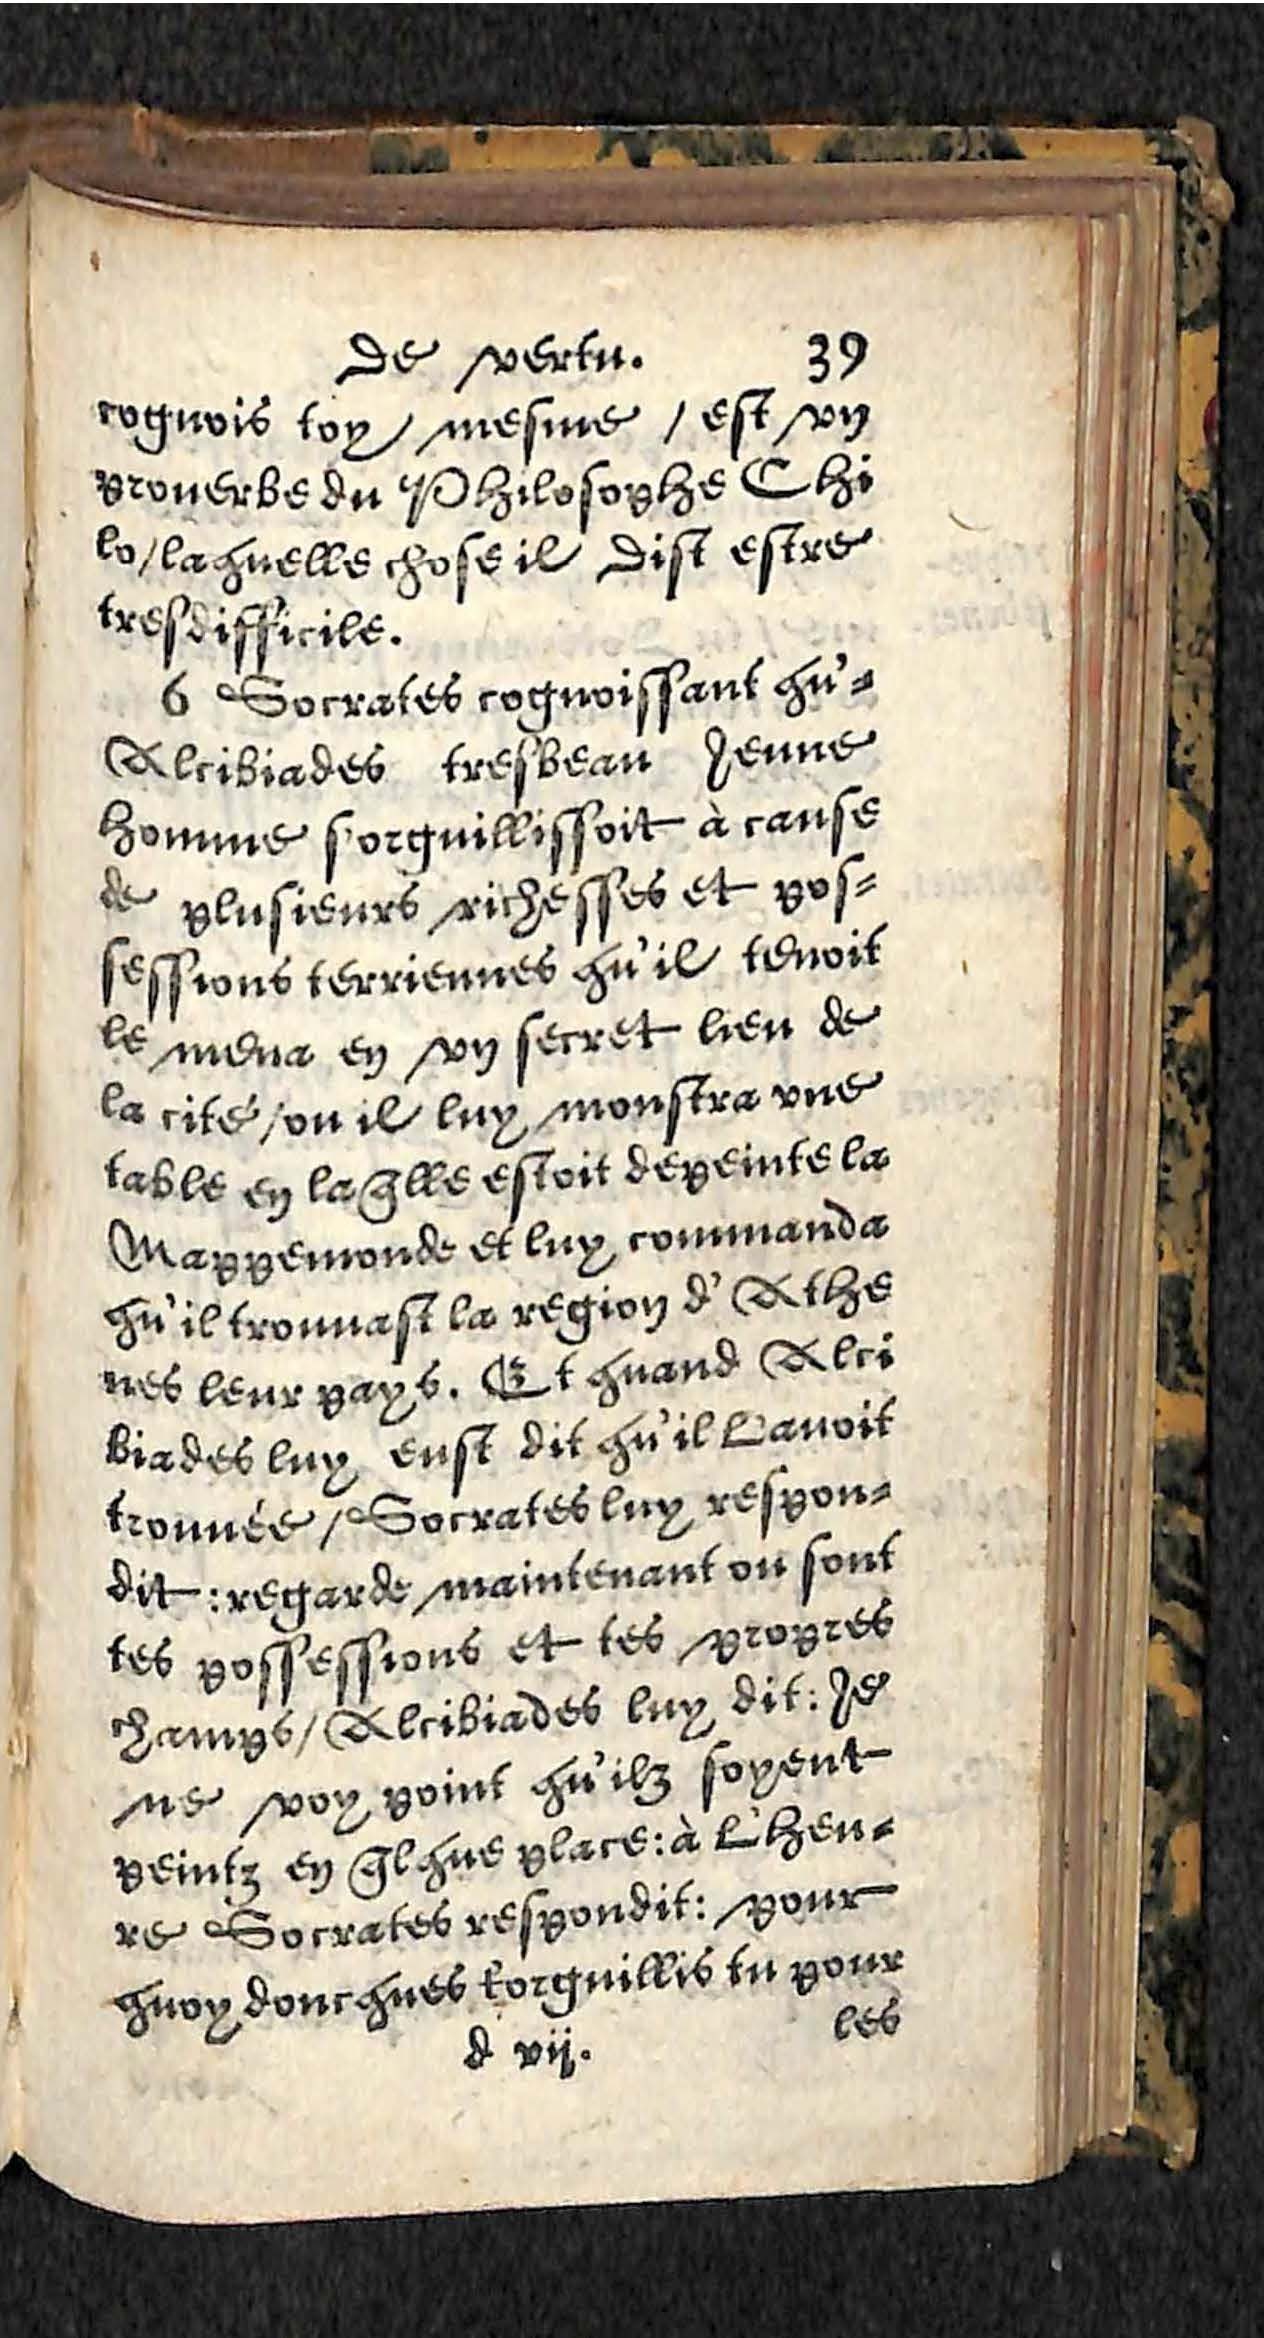 De vertu. 39
cognois toy mesme / est vn
prouerbe du Philosophe Chi
lo / laquelle chose il dist estre
tresdifficile.
6 Socrates cognoissant qu'-
Alcibiades tresbeau Ieune
homme s'orguillissoit à cause
de plusieurs richesses et pos-
sessions terriennes qu'il tenoit
le mena en vn secret lieu de
la cité / ou il luy monstra vne
table en laq̃lle estoit depeinte la
Mappemonde et luy commanda
qu'il trouuast la region d'Athe
nes leur pays. Et quand Alci
biades luy eust dit qu'il L'auoit
trouuée / Socrates luy respon-
dit : regarde maintenant ou sont
tes possessions et tes propres
champs / Alcibiades luy dit : Ie
ne voy point qu'ilz soyent
peintz en q̃lque place : à L'heu-
re Socrates respondit : pour
quoy doncques t'orguillis tu pour
d vij. les